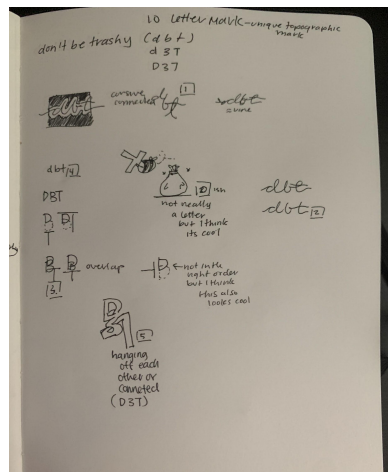 10 letter mark - unique topographic
mark
don't be trashy (dbt)
d3T
D3T
dbt
cursive
connected
bt
[1]
dbt
dbt [4]
DBT
D BT
[10] ish
not really
a letter
but I think
its cool
dbt
dbt [2]
B B overlap
[3]
← not in the
right order
but I think
this also
looks cool
[5]
hanging
off each
other or
connected
(D3T)